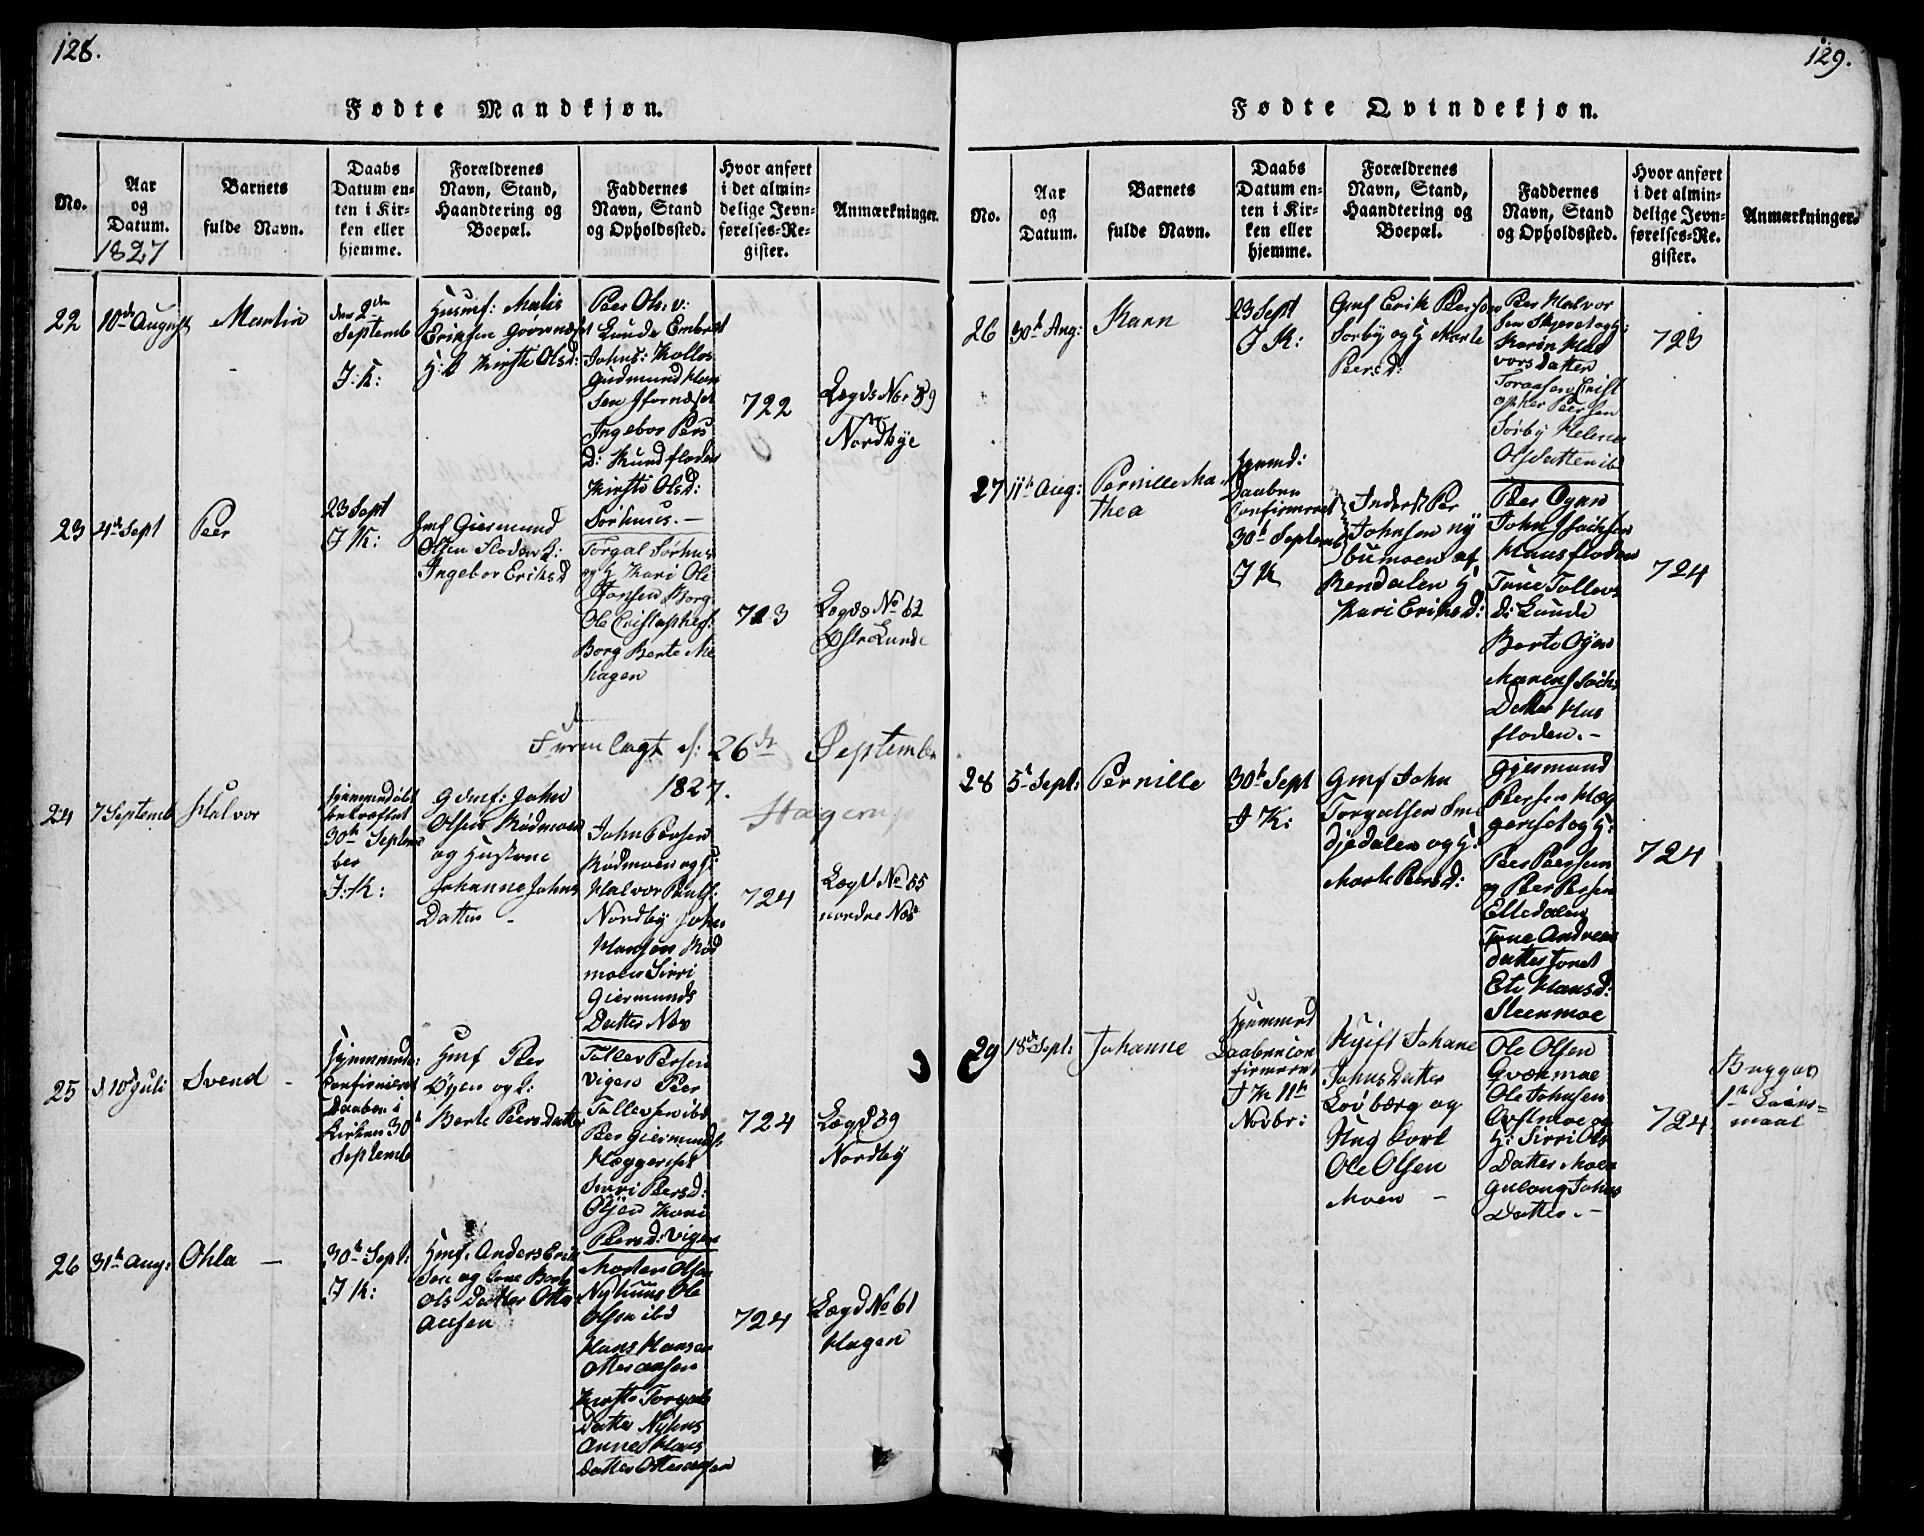 128.
Fødte Mandkjøn.
No.
Aar
og
Datum.
1827
Barnets
fulde Navn.
Daabs
Datum en-
ten i Kir-
ken eller
hjemme.
Forældrenes
Navn, Stand,
Haandtering og
Boepæl.
Faddernes
Navn, Stand
og Opholdssted.
Hvor anført
i det almin-
delige Jevn-
førelses-Re-
gister.
Anmærkninger.
22
10de August
Martin
den 2den
Septemb
J: K:
Husmf: Matis
Eriksen
H: K Kirsti Olsd:
Peer Ols: v:
Lunde Embret
Johns: Kollos
Gudmund Han
sen
Ingebor Pers
d: Rundfloden
Kirsti Olsd:
Sørhuus. —
722
Lægds No 59
Nordbye
23
4de Sept
Peer
23 Sept
J K:
Gmf Giermund
Olsen Floden H:
Ingebor Eriksd
Torgal Sørhus
og H Kari Ole
Jonsen Borg
Ole Cristophers:
Borg Berte Me
hagen
723
Lægds No 62
Østre Lunde
Fremlagt d: 26de September
1827.
24
7 Septemb
Halvor
hjemmedøbt
bekræftet
30th Septem
ber
J: K:
Gdmf: John
Olsen Rødmoen
og Hustrue
Johanne Johns
Datter —
John Persen
Rødmoen og H:
Halvor Pauls:
Nordby John
Hansen Rød
moen Sirri
Giermunds
Datter Næs
724
Lægd No 55
nordre Næs
25
d 10de Juli
Svend —
Hjemmeda:
Confirmeret
Daaben i
Kirken 30
Septemb
Hmf Peer
Øyen og H:
Berte Peers Datter
Tollev Persen
Vigen Peer
Tollevsen ibd
Peer Giermunds:
Hæggeriset
Sirri Peersd:
Øyen Kari
Peersd: Vigen
724
Lægd 39
Nordby
26
31th Aug:
Ohla —
30th Sept:
J K:
Hmf: Anders Erik
sen og Kone Berte
Ols Datter Otter
aasen
Morten Olsen
Nyhuus Ole
Olsen ibd
Hans Hansen
Otteraasen
Kirsti Torgals
Datter Nyhus
Anne Hans
datter Otteraasen
724
Lægd No 61
Hagen
129.
Fødte Qvindekjøn.
No.
Aar
og
Datum.
Barnets
fulde Navn.
Daabs
Datum en-
ten i Kir-
ken eller
hjemme.
Forældrenes
Navn, Stand,
Haandtering og
Boepæl.
Faddernes
Navn, Stand
og Opholdssted.
Hvor anført
i det almin-
delige Jevn-
førelses-Re-
gister.
Anmærkninger.
26
30th Aug:
Karn
23 Sept
J K:
Gmf Erik Persen
Sørby og H Marte
Peersd:
Per Halvor
sen Skjeret og H:
Karin Hal
vorsdatter
Crist
opher Persen
Sørby Helene
Olsdatter ibd
723
27
11th Aug:
Pernille Ma-
thea
hjemd:
Daaben
Confirmeret
30th Septemb
J K
Inderst Per
Johnsen Ny
bumoen af
Rendalen H
Kari Eriksd:
Peer Øyen
John Isachsen
Husfloden
Tone Tollevs
d: Lunde
Berte Øyen
Maren Isachs
Datter Hus
floden. —
724
28
5t Sept:
Pernille
30th Sept
J K:
Gmf John
Torgalsen Sme
djedalen og H:
Marte Persd:
Gjermund
Persen Hæg
geriset og H:
Peer Peersen
og Per Persen
Elledalen
Tone Andreas
datter
Eli Hansd:
Steenmoe
724
29
18de Sept:
Johanne
Hjemmed
Daaben con
firmeret
J K 11th
Novbr:
Ugift Johane
Johns Datter
Løvberg og
Ung Karl
Ole Olsen
Moen —
Ole Olsen
Ole Johnsen
og
H: Sirri Ols
Datter Moen
Gulaug Johns
Datter. —
724
Begges
1te Leiers-
maal